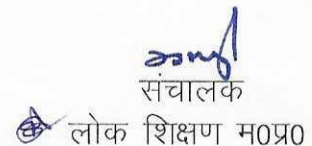 संचालक
लोक शिक्षण म0प्र0